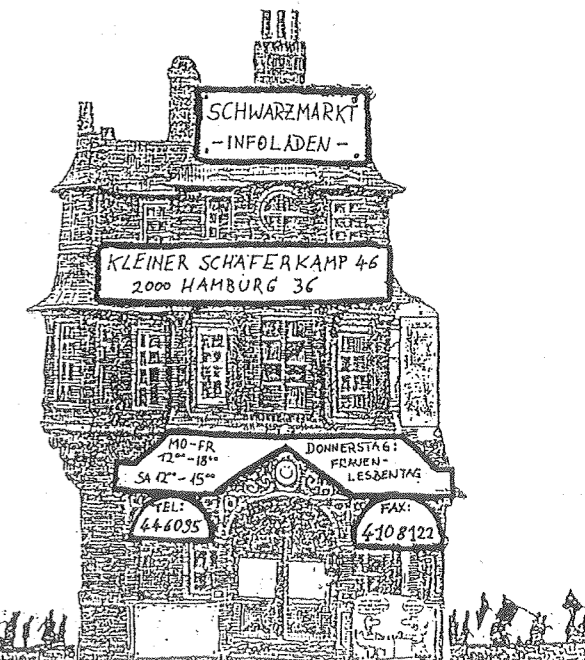 SCHWARZMARKT
-INFOLADEN-
KLEINER SCHÄFERKAMP 46
2000 HAMBURG 36
MO-FR
12⁰⁰-18⁰⁰
SA 12⁰⁰-15⁰⁰
DONNERSTAG:
FRAUEN-
LESBENTAG
TEL:
446095
FAX:
4108122